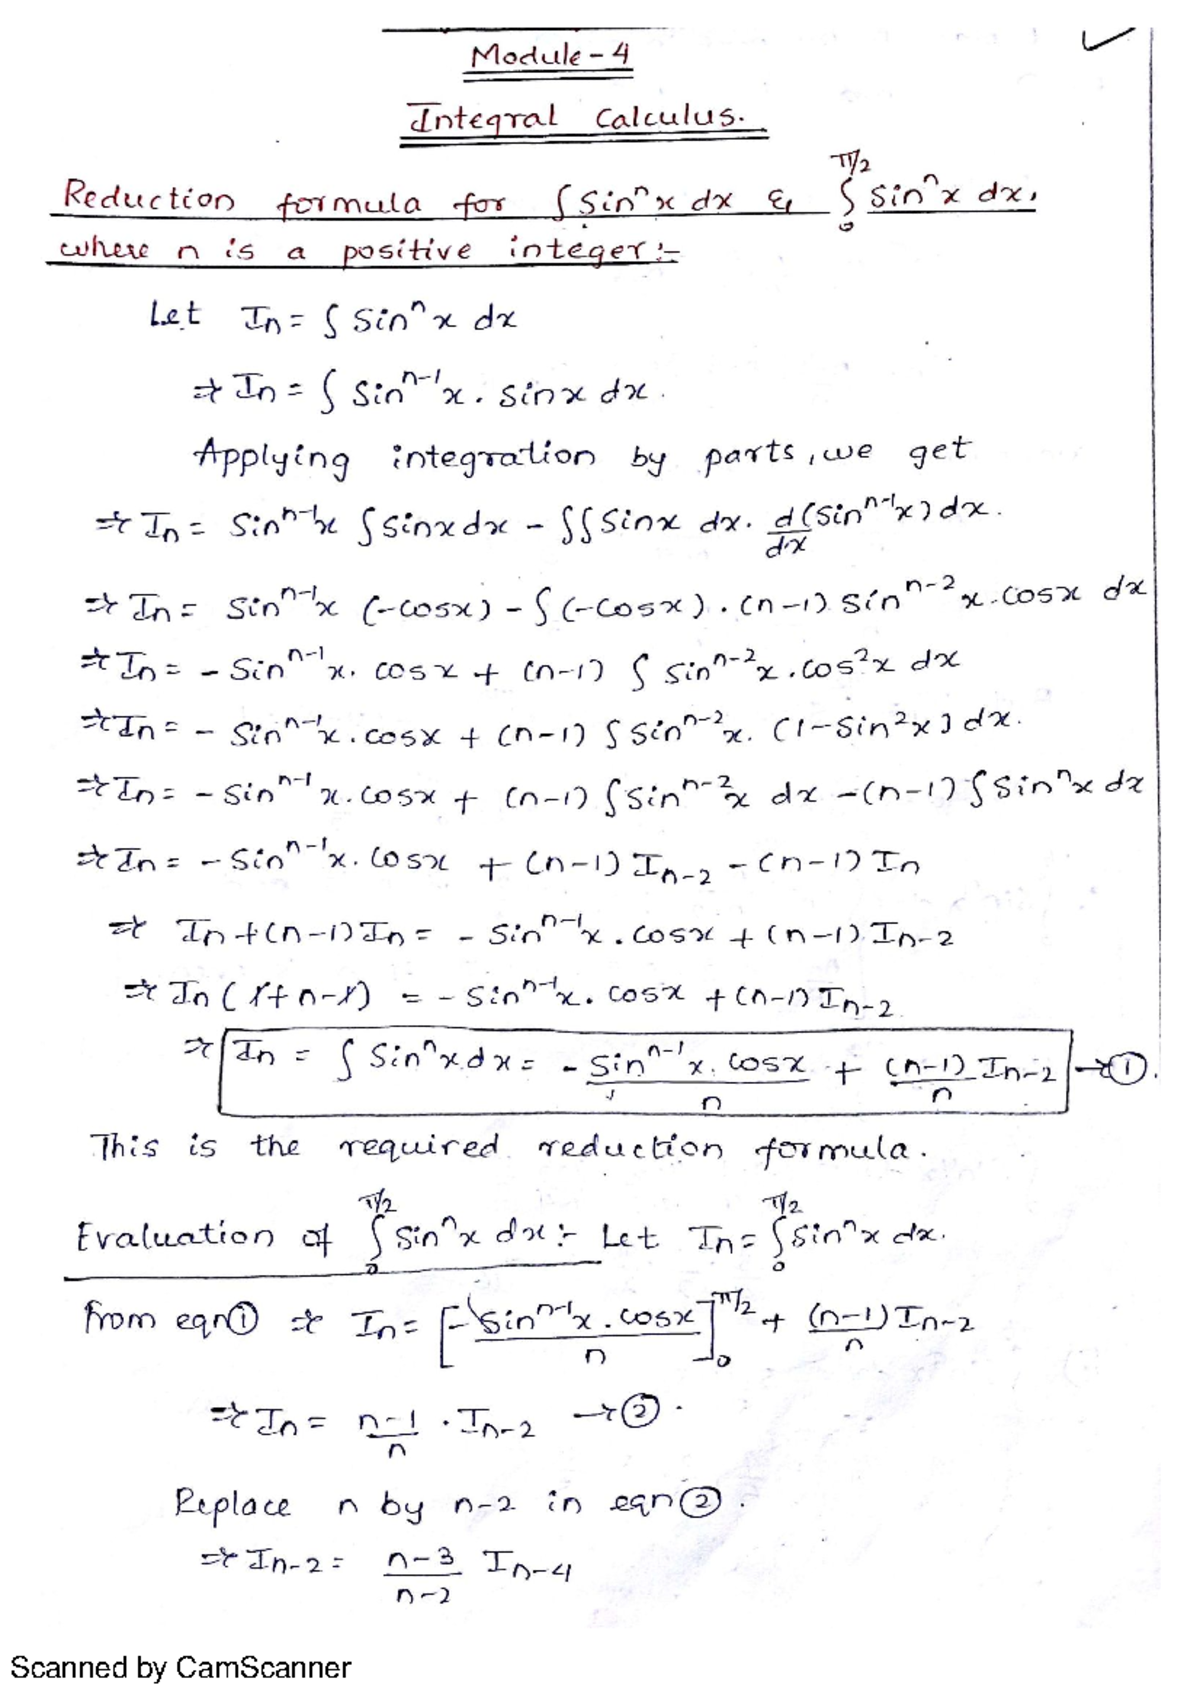 Module-4
Integral Calculus.
Reduction formula for ∫ Sinⁿx dx & ∫₀^(π/2) sinⁿx dx,
where n is a positive integer:-
Let In = ∫ Sinⁿx dx
⇒ In = ∫ Sin^(n-1)x . sinx dx.
Applying integration by parts, we get
⇒ In = Sin^(n-1)x ∫ sinx dx - ∫∫ Sinx dx. d/dx (sin^(n-1)x) dx.
⇒ In = Sin^(n-1)x (-cosx) - ∫ (-cosx) . (n-1) sin^(n-2)x . cosx dx
⇒ In = - Sin^(n-1)x . cosx + (n-1) ∫ sin^(n-2)x . cos²x dx
⇒ In = - Sin^(n-1)x . cosx + (n-1) ∫ sin^(n-2)x . (1-Sin²x) dx.
⇒ In = - Sin^(n-1)x . cosx + (n-1) ∫ sin^(n-2)x dx - (n-1) ∫ Sinⁿx dx
⇒ In = - Sin^(n-1)x . cosx + (n-1) In-2 - (n-1) In
⇒ In + (n-1) In = - Sin^(n-1)x . cosx + (n-1) In-2
⇒ In (1+n-1) = - Sin^(n-1)x . cosx + (n-1) In-2
⇒ In = ∫ Sinⁿx dx = - sin^(n-1)x . cosx / n + (n-1)/n In-2 → ①.
This is the required reduction formula.
Evaluation of ∫₀^(π/2) sinⁿx dx:- Let In = ∫₀^(π/2) sinⁿx dx.
From eqn① ⇒ In = [- sin^(n-1)x . cosx / n]₀^(π/2) + (n-1)/n In-2
⇒ In = n-1/n . In-2 → ② .
Replace n by n-2 in eqn② .
⇒ In-2 = n-3/n-2 In-4
Scanned by CamScanner